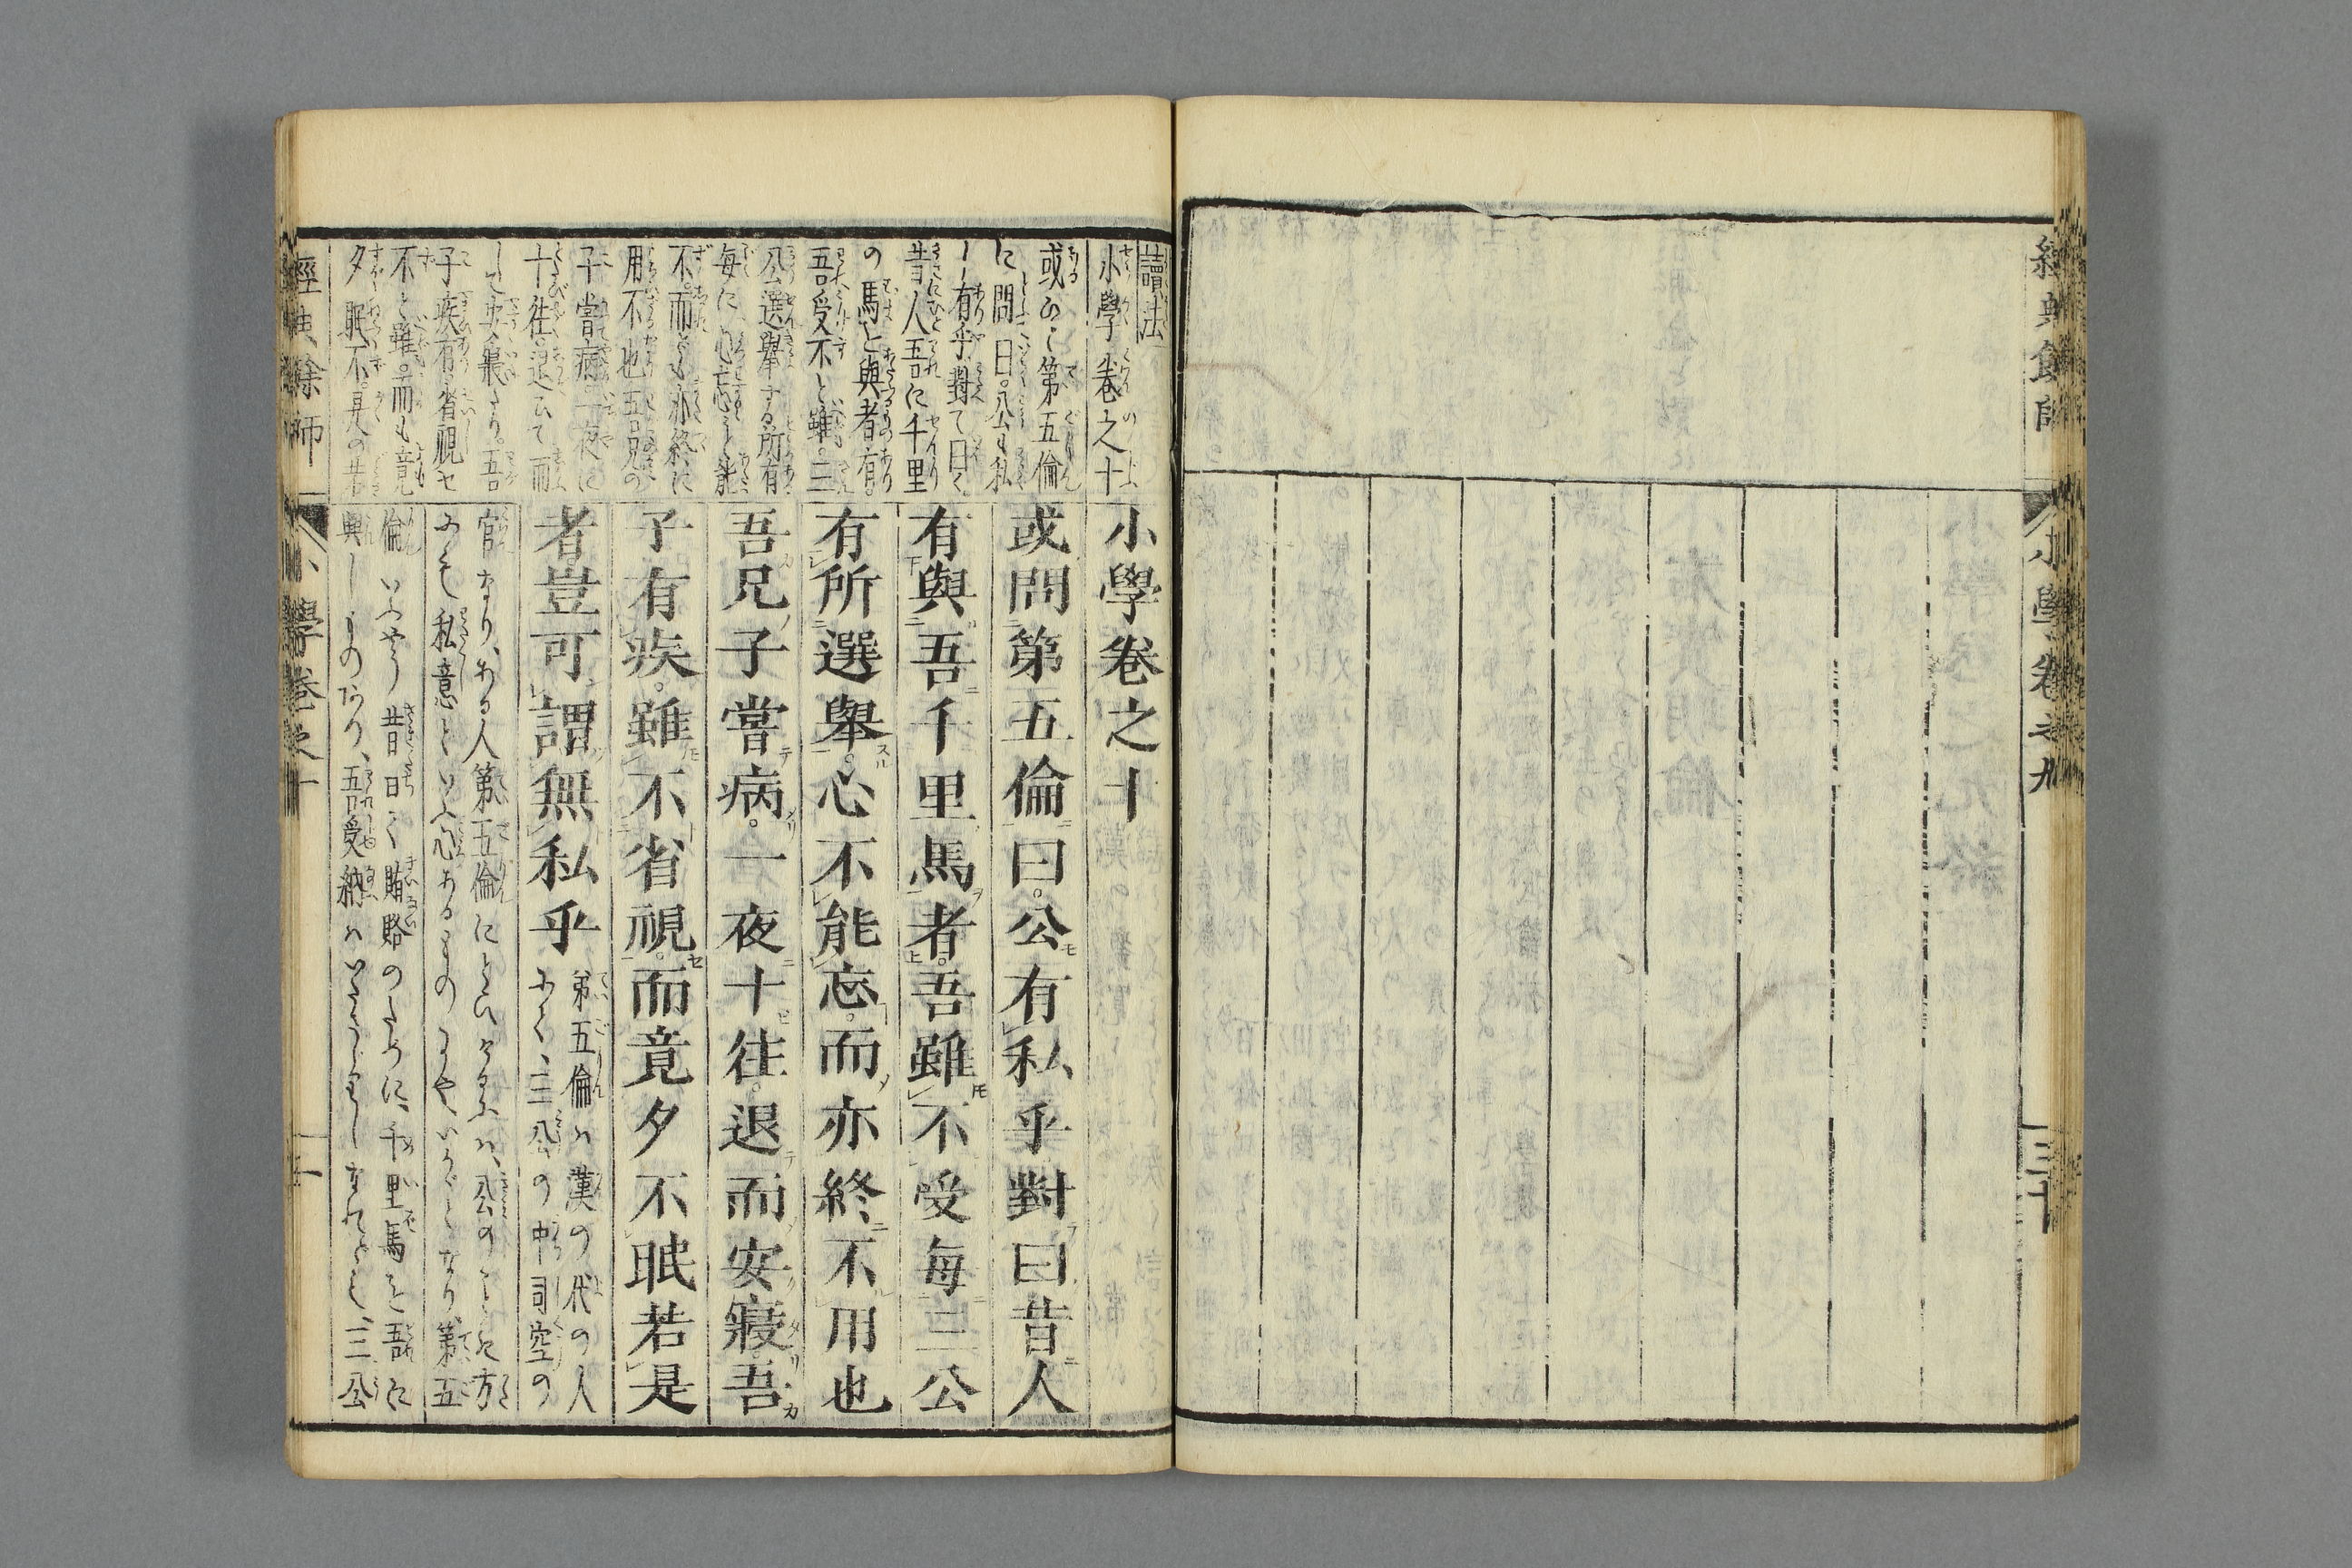 經典餘師
小學卷之九
三十
讀法
小學卷之十
或ひと第五倫
に問て曰。公も私
し有乎對て曰く
昔人吾に千里
の馬と與者有。
吾受不と雖。三
公選擧する所有
毎に心忘るゝ能
不。而とも亦終に
用不也吾兄の
子當て病。一夜に
十往。退ひて而
して安寢たり。吾
子疾有。省視セ
不と雖。而も竟
夕眠不。是の若
小學卷之十
或問第五倫曰。公有私乎對曰昔人
有與吾千里馬者。吾雖不受每三公
有所選擧。心不能忘。而亦終不用也
吾兄子嘗病。一夜十往。退而安寢。吾
子有疾。雖不省視。而竟夕不眠若是
者。豈可謂無私乎
第五倫ハ漢の代の人
にて、三公の中司空の
官なり、ある人第五倫にとひけるハ、公の
みて私意といふ心あるものにや、いかゞとなり、第五
倫いふやう昔日く賄賂のために、千里馬を吾に
與しものあり、吾受納ハいたさずしなれども、三公
經典餘師
小學卷之十
一